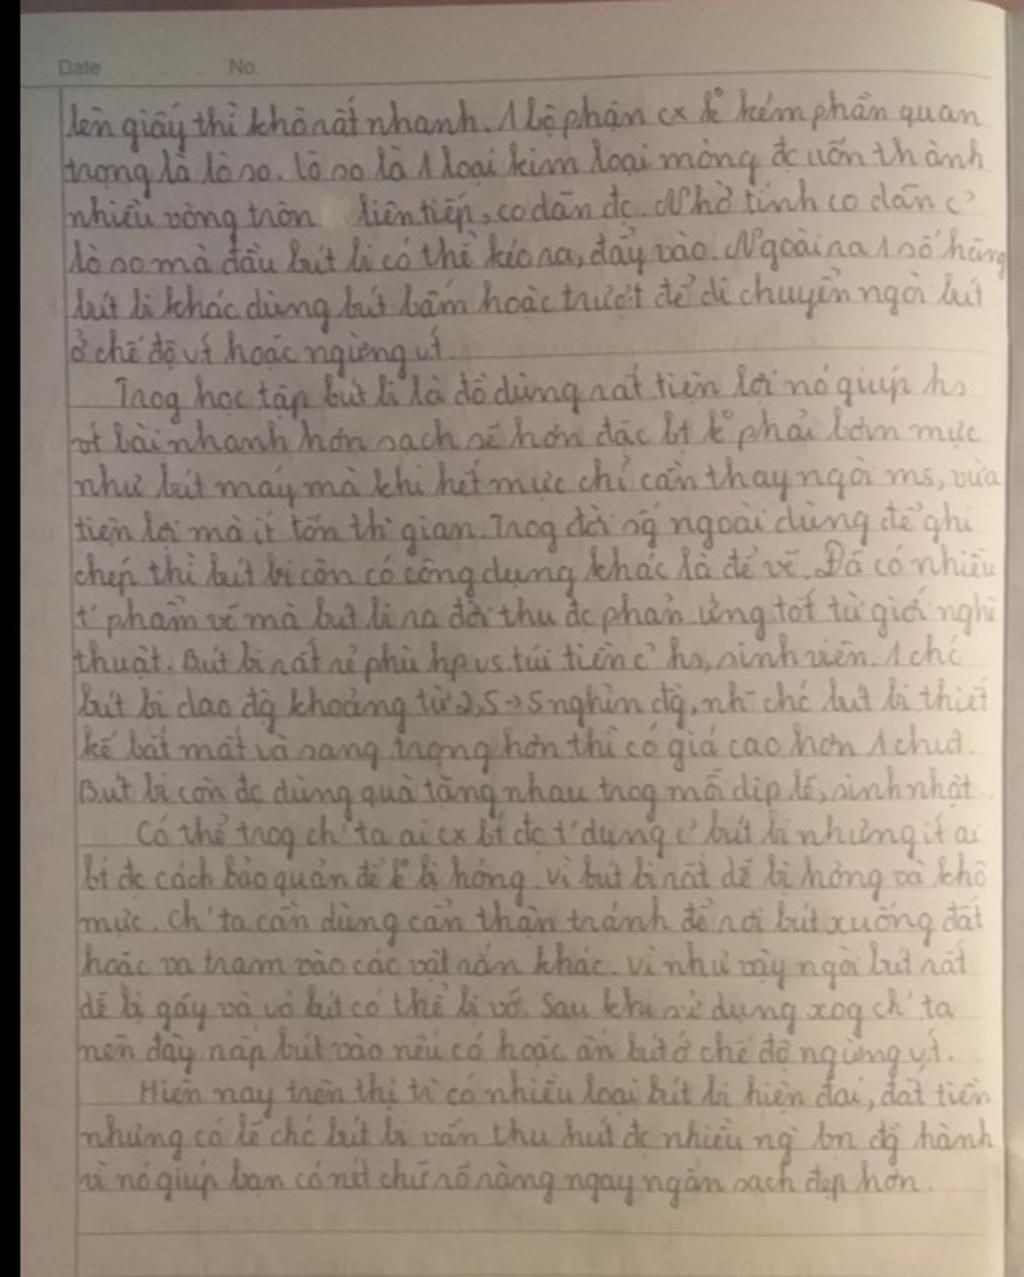 Date No.
lên giấy thì khô rất nhanh. 1 bộ phận cx k° kém phần quan
trọng là lò so. Lò so là 1 loại kim loại mỏng đc uốn thành
nhiều vòng tròn liên tiếp, co dãn đc. Nhờ tính co dãn c'
lò so mà đầu bút bi có thể kéo ra, đẩy vào. Ngoài ra 1 số hãng
bút bi khác dùng bút bấm hoặc trượt để di chuyển ngòi bút
ở chế độ vt hoặc ngừng vt.
Trog học tập bút bi là đồ dùng rất tiện lợi nó giúp hs
vt bài nhanh hơn sạch sẽ hơn đặc bt k° phải bơm mực
như bút máy mà khi hết mực chỉ cần thay ngòi ms, vừa
tiện lợi mà ít tốn th' gian. Trog đời sg ngoài dùng để ghi
chép thì bút bi còn có công dụng khác là để vẽ. Đã có nhiều
t' phẩm vẽ mà bút bi ra đời thu đc phản ứng tốt từ giới nghệ
thuật. Bút bi rất rẻ phù hp vs túi tiền c' hs, sinh viên. 1 chć
bút bi dao độg khoảng từ 2,5 → 5 nghìn đg, nh~ chć bút bi thiết
kế bắt mắt và sang trọng hơn thì có giá cao hơn 1 chút.
Bút bi còn đc dùng quà tặng nhau trog mỗi dịp lễ, sinh nhật.
Có thể trog ch' ta ai cx bt đc t' dụng c' bút bi nhưng ít ai
bt đc cách bảo quản để k° bị hỏng. Vì bút bi rất dễ bị hỏng và khô
mực. Ch' ta cần dùng cẩn thận tránh để rơi bút xuống đất
hoặc va trạm vào các vật rắn khác. Vì như vậy ngòi bút rất
dễ bị gãy và vỏ bút có thể bị vỡ. Sau khi sử dụng xog ch' ta
nên đậy nắp bút vào nếu có hoặc ấn bút ở chế độ ngừng vt.
Hiện nay trên thị tr' có nhiều loại bút bi hiện đại, đắt tiền
nhưng có lẽ chć bút bi vẫn thu hút đc nhiều ng` bn đg hành
vì nó giúp bạn có nét chữ rõ ràng ngay ngắn sạch đẹp hơn.